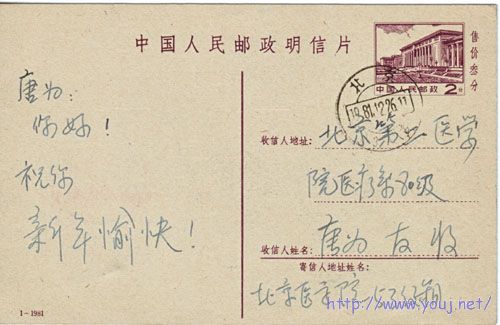 中国人民邮政明信片
售价叁分
中国人民邮政 2分
北京
1981.12.26.11
唐为：
你好！
祝你
新年愉快！
收信人地址：北京第二医学
院医疗系80级
收信人姓名：唐为 友收
寄信人地址姓名：
北京医学院
1-1981
http://www.youj.net/